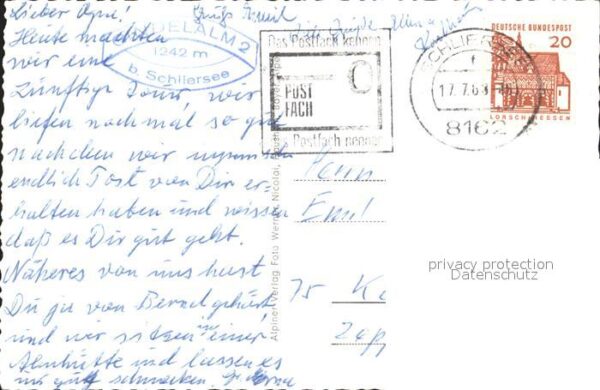 Lieber Opa,
Heute machten
wir eine
zünftige Tour, wir
liefen nochmal so gut
nachdem wir
endlich Post von Dir er-
halten haben und wissen
daß es Dir gut geht.
Näheres von uns hast
Du ja von Bernd gehört,
und wir sitzen in einer
Almhütte und lassen es
uns gut schmecken.
DELALM 2
1242 m
b. Schliersee
Das Postfach
POST
FACH
Postfach nennen
SCHLIERSEE
17.7.6
8162
DEUTSCHE BUNDESPOST
20
LORSCH/HESSEN
Alpiner Verlag Foto Werner Nicolai,
Emil
75 Ka
privacy protection
Datenschutz